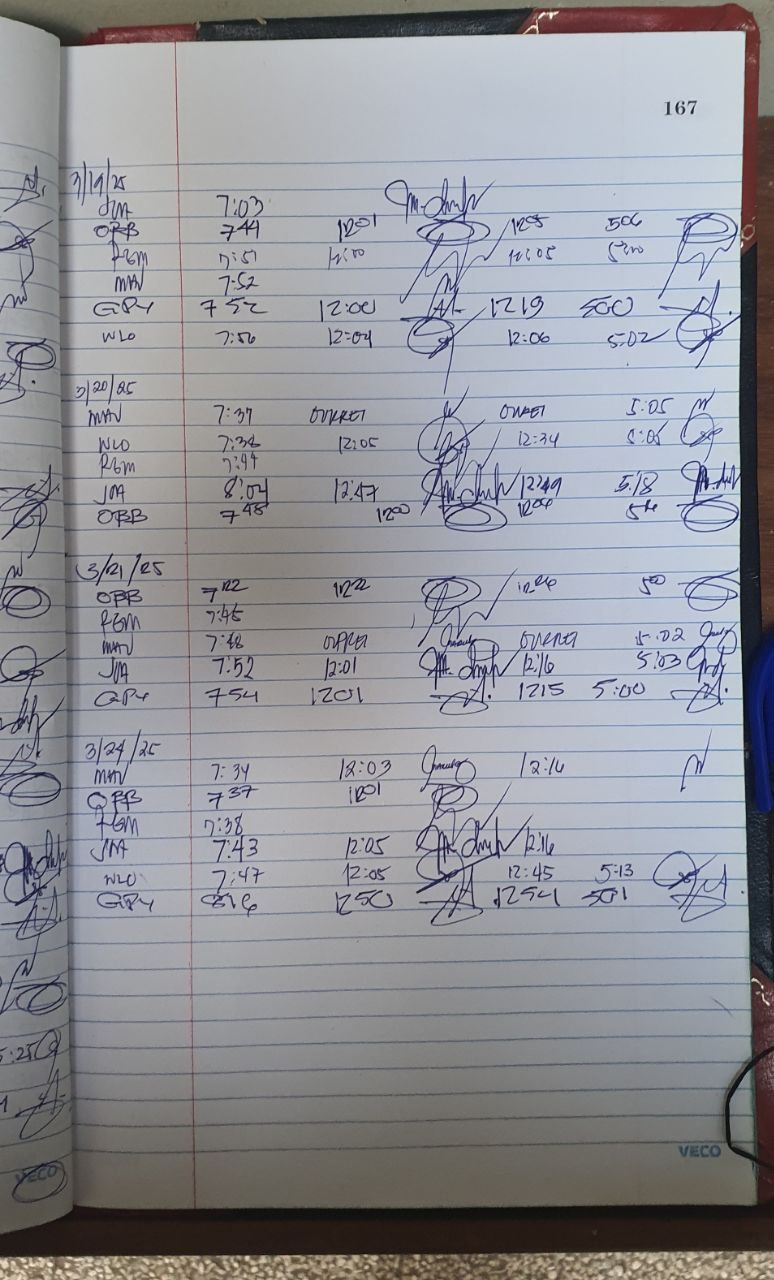 167
3/19/25
JMA 7:03
OBB 744 1201 1205 506
RGM 7:51 12:00 12:05 5:00
MAV 7:52
GPY 752 12:00 1219 500
WLO 7:56 12:04 12:06 5:02
3/20/25
MAV 7:37 5:05
WLO 7:38 12:05 12:34 5:05
RGM 7:44
JMA 8:04 12:47 1249 5:18
OBB 748 1200 1206
3/21/25
OBB 722 1222 1226 500
RGM 7:45
MAV 7:48 5:02
JMA 7:52 12:01 12:16 5:03
GPY 754 1201 1215 5:00
3/24/25
MAV 7:34 12:03 12:16
OBB 737 1201
RGM 7:38
JMA 7:43 12:05 12:16
WLO 7:47 12:05 12:45 5:13
GPY 816 1250 1254 501
5:25
VECO
VECO